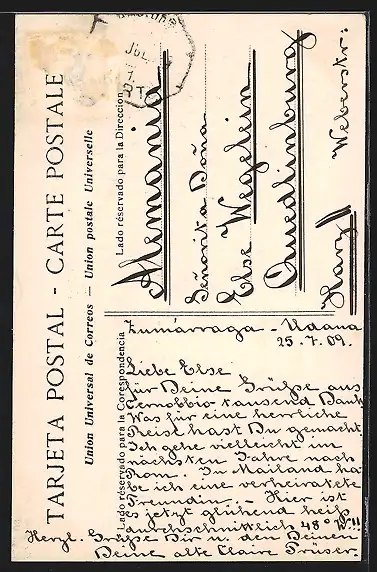 TARJETA POSTAL - CARTE POSTALE
Union Universal de Correos — Union postale Universelle
Lado réservado para la Corespondencia
Lado réservado para la Direccion
JUL
Alemania
Señorita Doña
Else Wegelein
Quedlinburg
Harz
Weberstr:
Zumárraga - Udana
25.7.09.
Liebe Else
für Deine Grüße aus
Cernobbio tausend Dank
Was für eine herrliche
Reise hast Du gemacht
Ich gehe vielleicht im
nächsten Jahre nach
Rom. In Mailand ha-
be ich eine verheiratete
Freundin. - Hier ist
es jetzt glühend heiß
durchschnittlich 48°
Herzl. Grüße Dir u. den Deinen
Deine alte Claire Prüser.